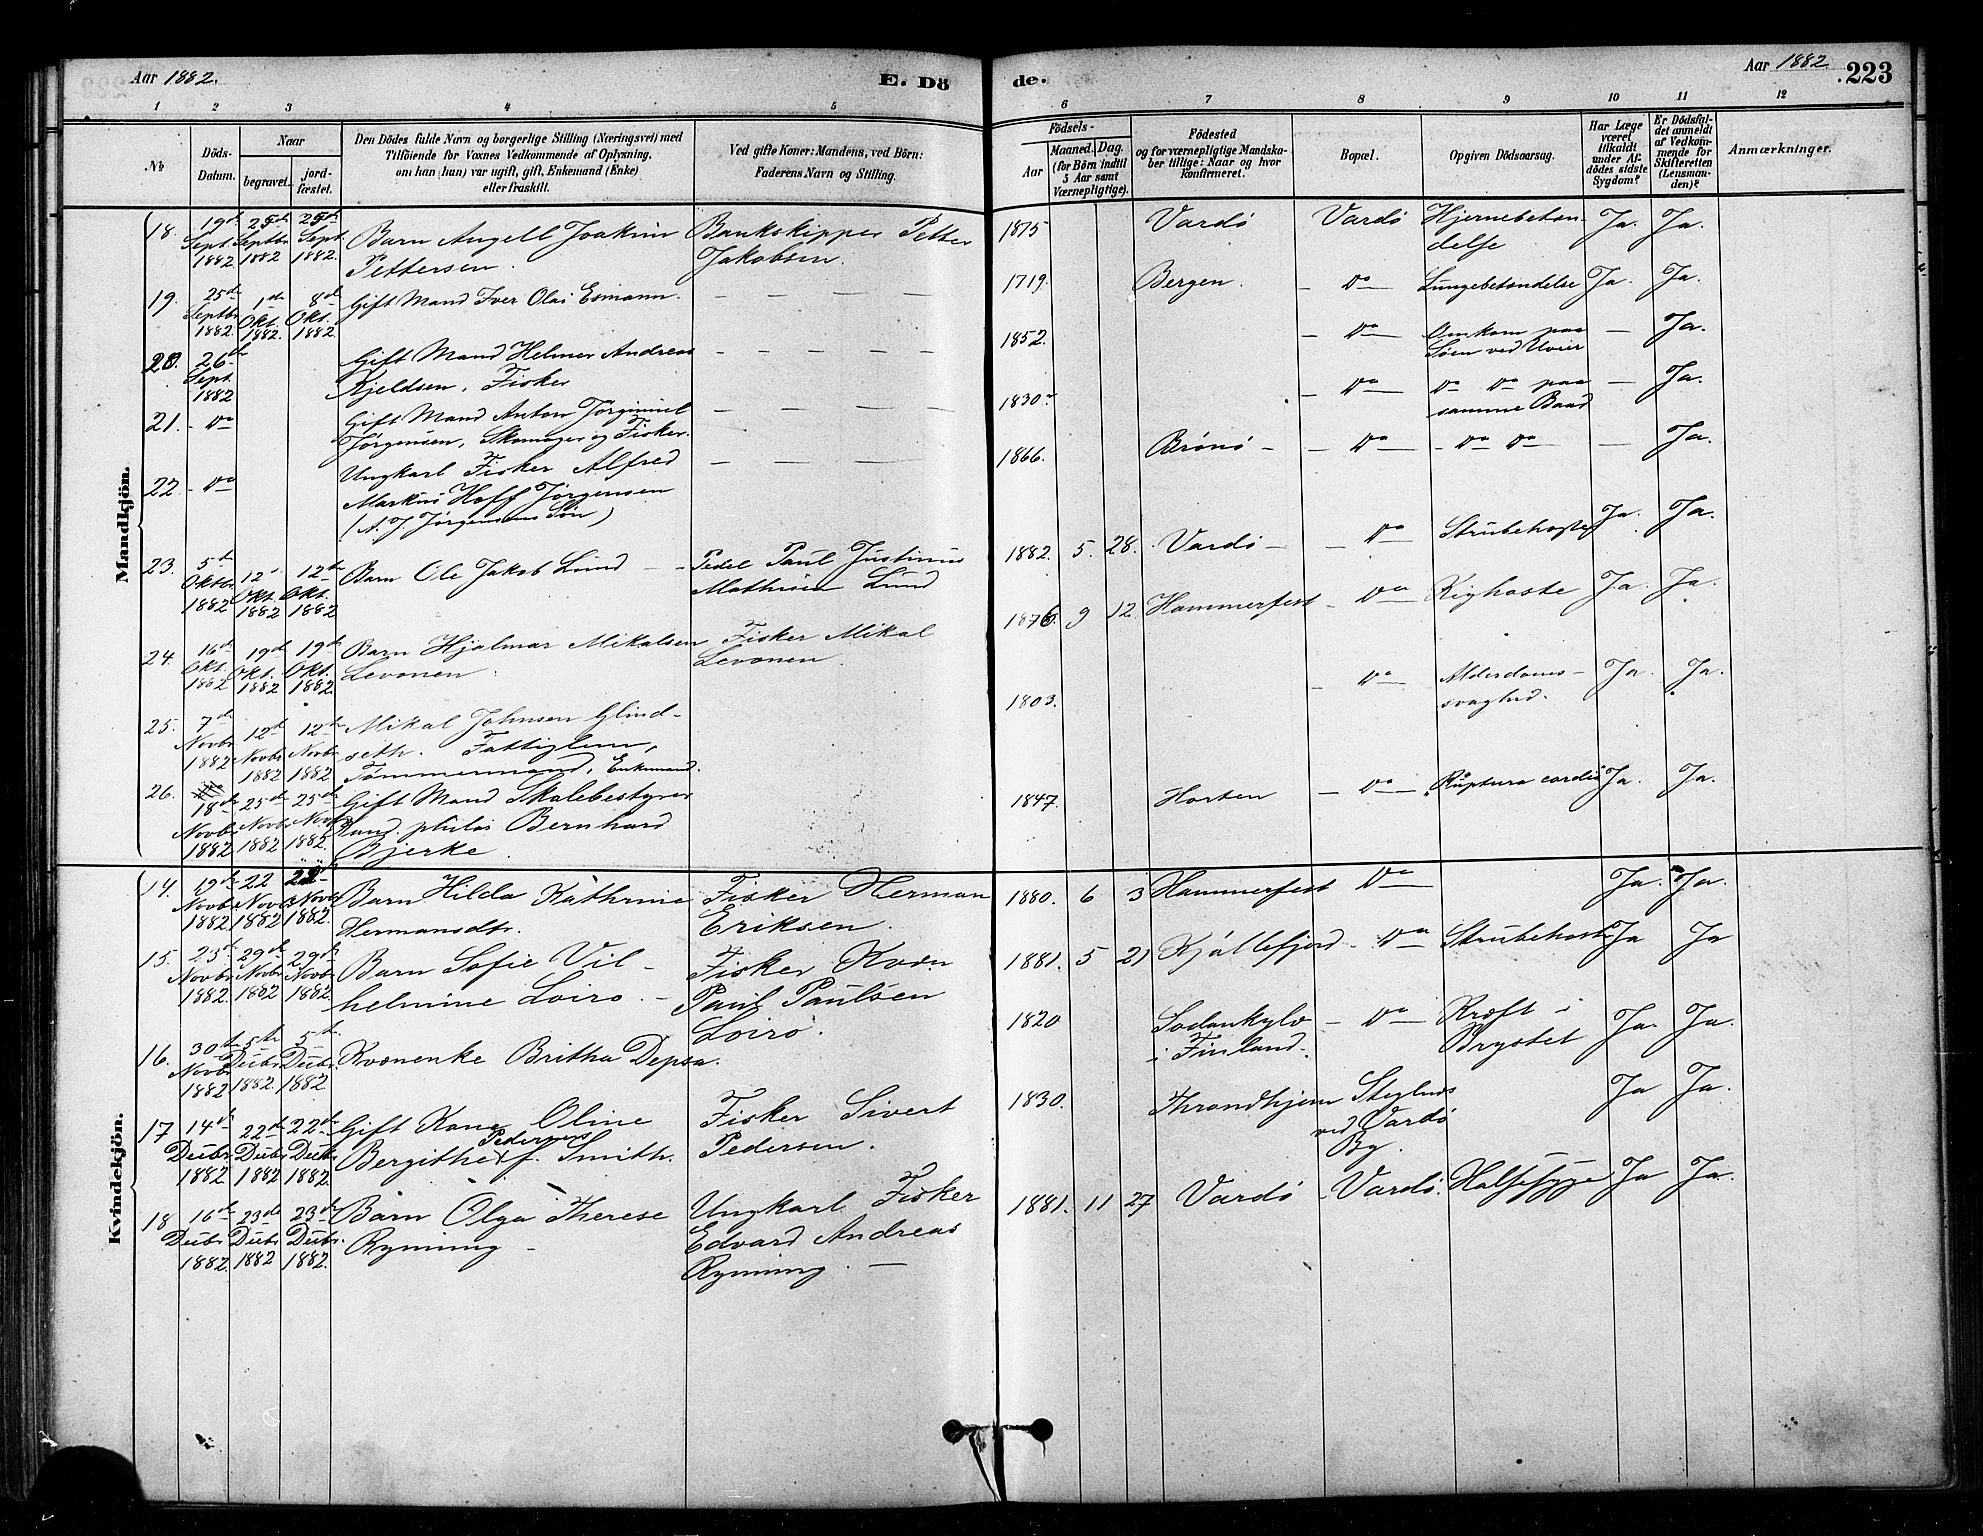 Aar 1882.
E. Dö
de.
Aar 1882
223
1 2 3 4 5 6 7 8 9 10 11 12
No
Döds-Datum.
Naar
begravet.
jord-fæstet.
Den Dödes fulde Navn og borgerlige Stilling (Næringsvei) med
Tilföiende for Voxnes Vedkommende af Oplysning,
om han (hun) var ugift, gift, Enkemand (Enke)
eller fraskilt.
Ved gifte Koner: Mandens, ved Børn:
Faderens Navn og Stilling.
Födsels-
Aar
Maaned. Dag.
(for Börn indtil
5 Aar samt
Værnepligtige).
Födested
og for værnepligtige Mandska-
ber tillige: Naar og hvor
konfirmeret.
Bopæl.
Opgiven Dödsaarsag.
Har Læge
været
tilkaldt
under Af-
dödes sidste
Sygdom?
Er Dödsfal-
det anmeldt
af Vedkom-
mende for
Skifteretten
(Lensman-
den)?
Anmærkninger.
Mandkjön.
18. 19de Sept. 1882 25de Septbr 1882 25de Sept. 1882. Barn Angell Joakim Pettersen. Bankskipper Petter Jakobsen. 1875 Vardö Vardö Hjernebetændelse Ja. Ja.
19. 25de Septbr 1882 1ste Okt. 1882 8de Okt. 1882 Gift Mand Iver Olai Esmann. — — — — 1719. Bergen. - Do Lungebetændelse Ja. Ja.
20. 26de Sept. 1882 Gift Mand Helmer Andreas Kjeldsen, Fisker — — — — 1852. - Do Omkom paa Söen ved Uveir — Ja.
21. - Do Gift Mand Anton Jörginius Jörgensen, Skomager og Fisker. — — — — 1830 - Do Do Do paa samme Baad — Ja.
22. - Do Ungkarl Fisker Alfred Markus Hoff Jörgensen (A. J. Jörgensens Sön) — — — — 1866. Brönö - - Do - Do Do — Ja.
23. 5te Oktbr 1882 12 Okt. 1882 12te Okt. 1882 Barn Ole Jakob Lund - Pedel Paul Justinus Mathisen Lund 1882. 5. 28. Vardö - - Do Strubehoste Ja. Ja.
24. 16de Okt. 1882 19de Okt. 1882 19de Okt. 1882 Barn Hjalmar Mikalsen Levonen. Fisker Mikal Levonen. 1876. 9 12 Hammerfest - Do Kighoste Ja. Ja.
25. 7de Novbr 1882 12te Novbr 1882 12te Novbr. 1882 Mikal Johnsen Glindseth. Fattiglem, Tömmermand, Enkemand. 1803. - Do Alderdoms-svaghed. Ja. Ja.
26. 18de Novbr 1882 25de Novbr 1882 25de Novbr 1882. Gift Mand Skolebestyrer Kand. philos Bernhard Bjerke. 1847. Horten - Do Ruptura cordis Ja. Ja.
Kvindekjön.
14. 19de Novbr 1882 22 Nov 1882 22de Novbr 1882. Barn Hilda Kathrine Hermansdtr. Fisker Herman Eriksen. 1880. 6 3 Hammerfest Do Ja. Ja.
15. 23de Novbr 1882 29de Novbr 1882 29de Novbr 1882 Barn Sofie Vilhelmine Loiro. - Fisker Kvæn Paul Paulsen Loiro. 1881. 5 21 Kjöllefjord - Do Strubehoste Ja Ja
16. 30te Novbr 1882 5te Decbr 1882. 5te Decbr 1882. Kvænenke Britha Depsa. 1820 Sodankylæ i Finland. - Do Kræft i Brystet Ja. Ja.
17 14de Decbr 1882 22de Decbr 1882 22de Decbr 1882. Gift Kone Oline Bergithe Pedersen f. Smith. Fisker Sivert Pedersen. 1830. Throndhjem Steglnes ved Vardö By. Ja Ja.
18 16de Decbr 1882. 23de Decbr 1882 23de Decbr. 1882. Barn Olga Therese Ryming - Ungkarl Fisker Edvard Andreas Ryming. — 1881. 11 27 Vardö - Vardö. Halssyge Ja Ja.